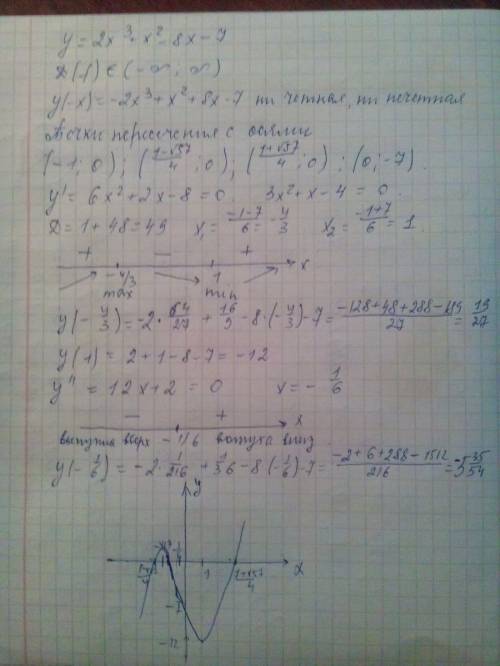 y = 2x³ + x² - 8x - 7
D(f) ∈ (-∞; ∞)
y(-x) = -2x³ + x² + 8x - 7 ни четная, ни нечетная
Точки пересечения с осями
(-1; 0); ((1-√57)/4; 0); ((1+√57)/4; 0); (0; -7).
y' = 6x² + 2x - 8 = 0. 3x² + x - 4 = 0.
D = 1 + 48 = 49 x₁ = (-1-7)/6 = -4/3 x₂ = (-1+7)/6 = 1.
+ − +
-4/3 1 x
max min
y(-4/3) = -2·64/27 + 16/9 - 8·(-4/3) - 7 = (-128+48+288-189)/27 = 19/27
y(1) = 2 + 1 - 8 - 7 = -12
y'' = 12x + 2 = 0 x = -1/6
− +
x
выпукла вверх -1/6 вогнута вниз
y(-1/6) = -2·1/216 + 1/36 - 8·(-1/6) - 7 = (-2+6+288-1512)/216 = -5 35/54
y
1 (1+√57)/4 x
-12